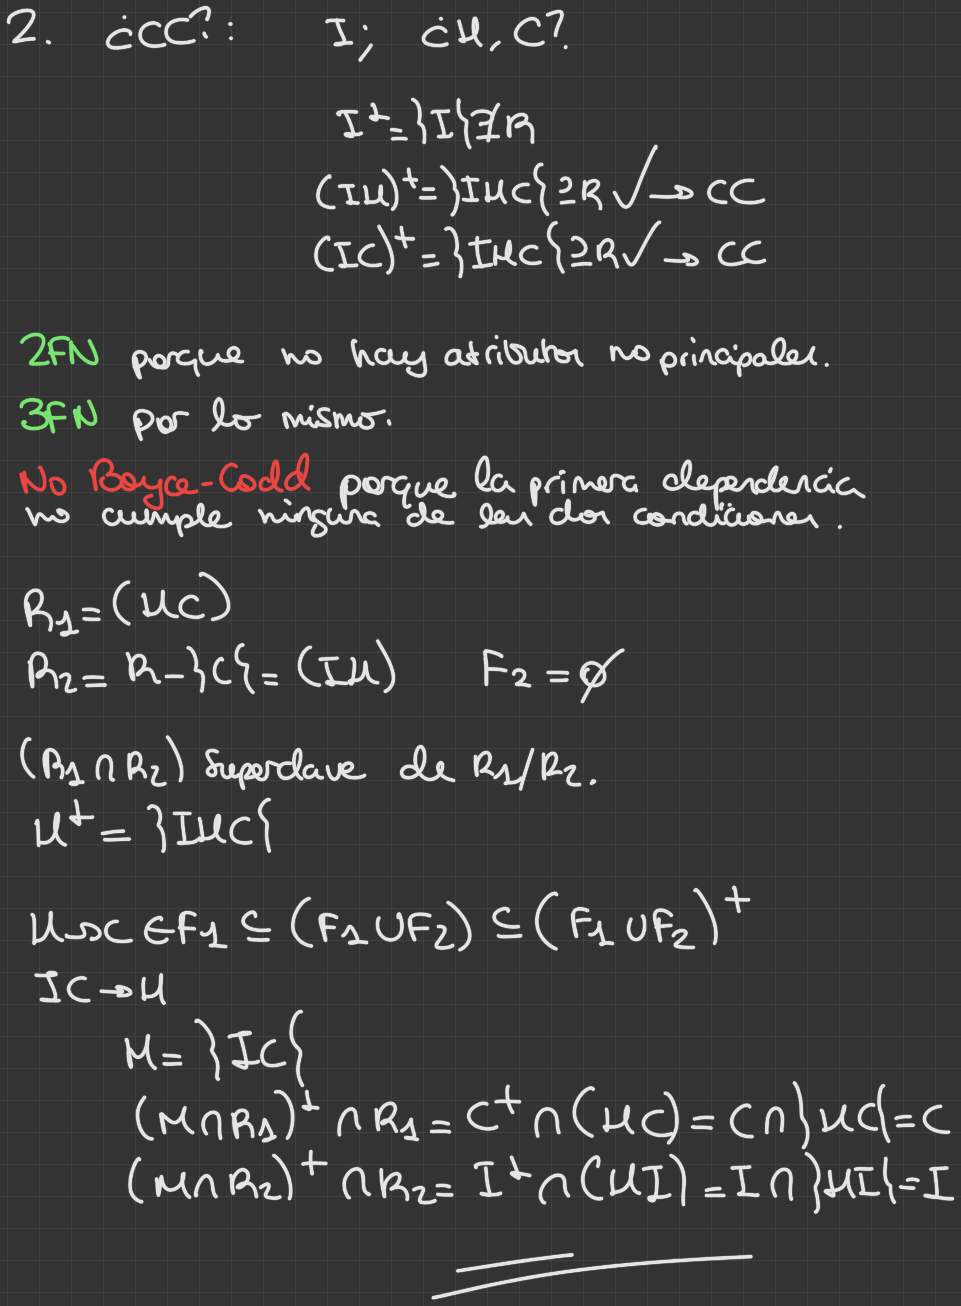 2. ¿CC?: I; ¿M, C?
I⁺=}I{∌R
(IM)⁺=}IMC{⊇R ✓→ CC
(IC)⁺=}IMC{⊇R ✓→ CC
2FN porque no hay atributos no principales.
3FN por lo mismo.
No Boyce-Codd porque la primera dependencia
no cumple ninguna de las dos condiciones.
R₁=(MC)
R₂= R-}C{=(IM) F₂=∅
(R₁∩R₂) Superclave de R₁/R₂.
M⁺= }IMC{
M→C ∈F₁ ⊆ (F₁∪F₂) ⊆ (F₁∪F₂)⁺
IC→M
M= }IC{
(M∩R₁)⁺∩R₁= C⁺∩(MC)= C∩}MC{=C
(M∩R₂)⁺∩R₂= I⁺∩(MI)=I∩}MI{=I